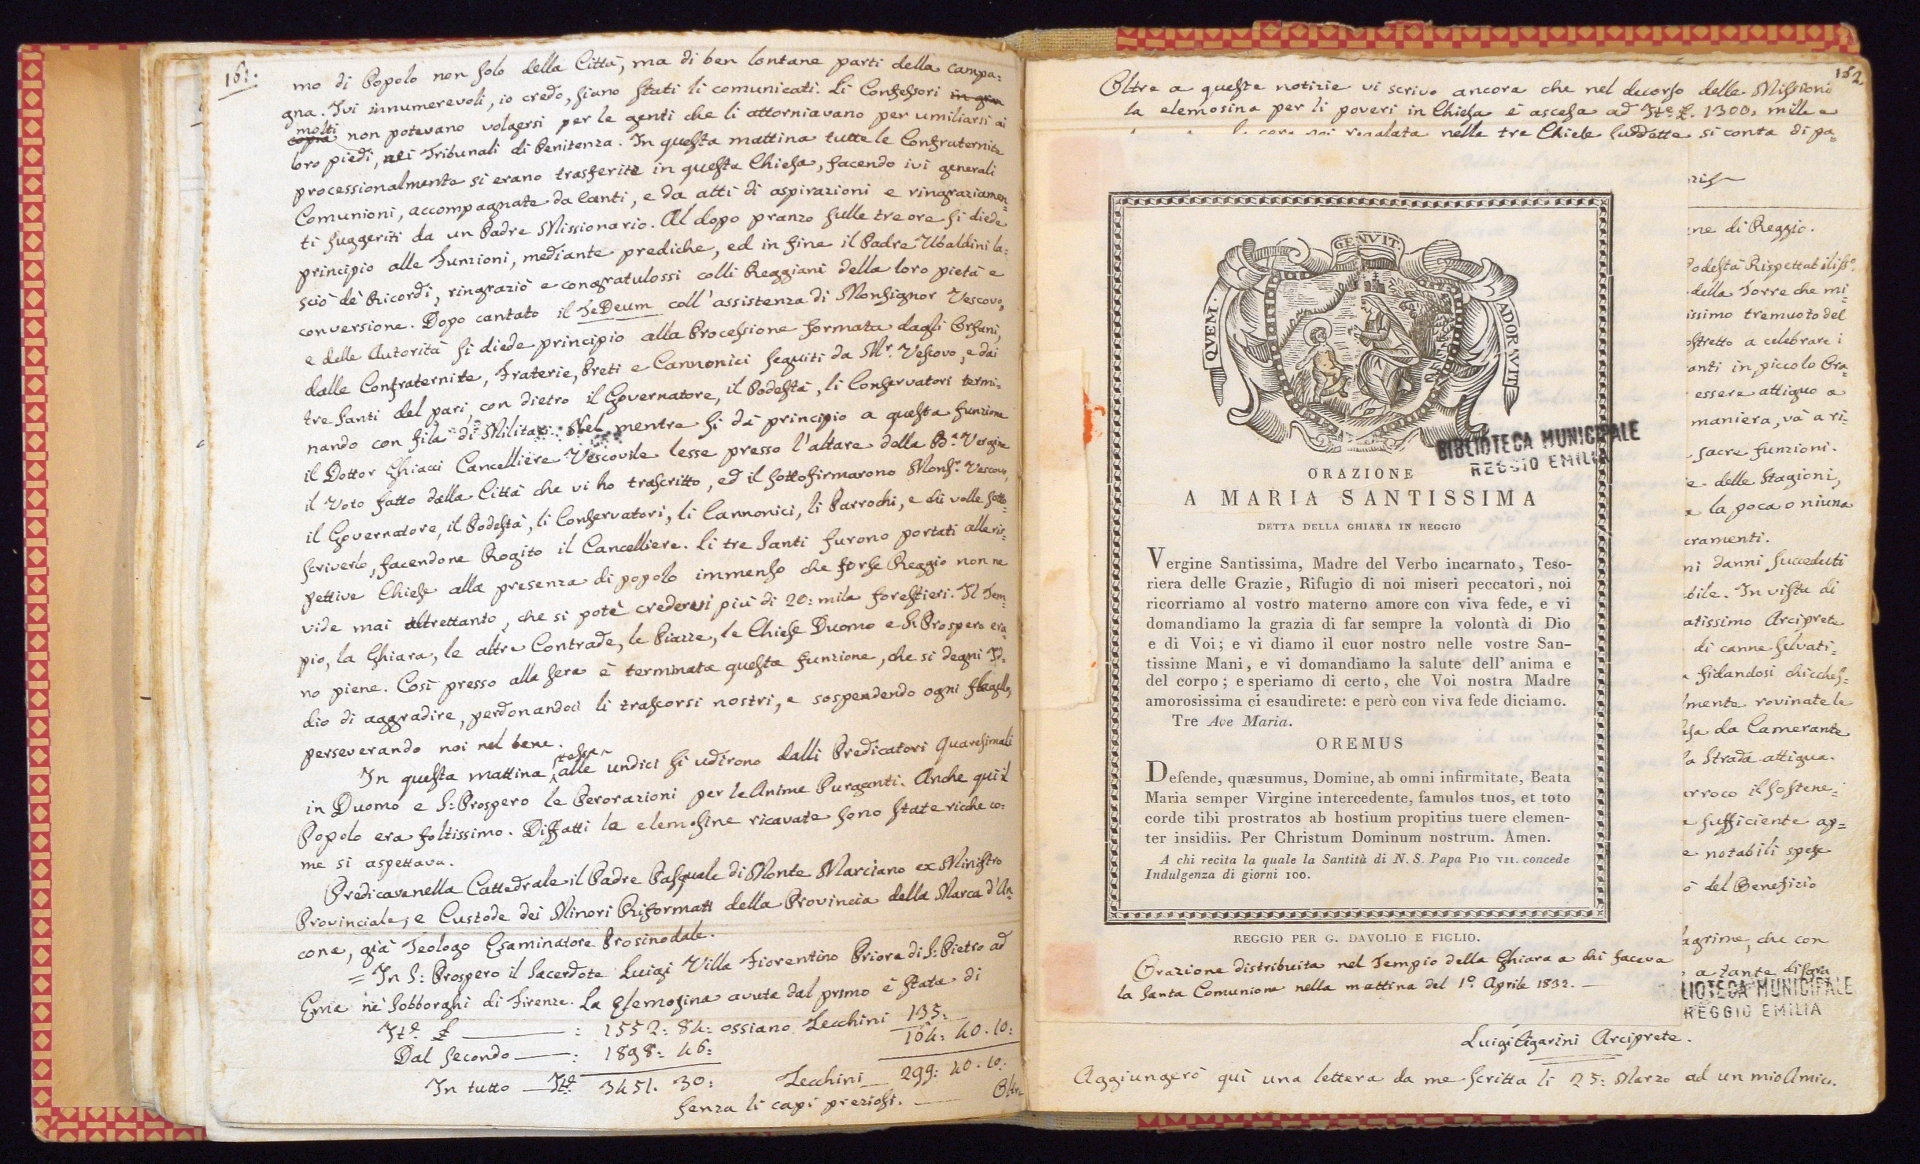 161.
mo di Popolo non solo della Città, ma di ben lontane parti della campa=
gna. Ivi innumerevoli, io credo, siano stati li comunicati. Li Confessori in gran
molti
copia non potevano volgersi per le genti che li attorniavano per umiliarsi ai
loro piedi, nei Tribunali di Penitenza. In questa mattina tutte le Confraternite
processionalmente si erano trasferite in questa Chiesa, facendo ivi generali
Comunioni, accompagnate da Canti, e da atti di aspirazioni e ringraziamen=
ti suggeriti da un Padre Missionario. Al dopo pranzo sulle tre ore si diede
principio alle Funzioni, mediante prediche, ed in fine il Padre Ubaldini la=
sciò de' Ricordi, ringraziò e congratulossi colli Reggiani della loro pietà e
conversione. Dopo cantato il TeDeum coll'assistenza di Monsignor Vescovo,
e delle Autorità si diede principio alla Processione formata dagli Orfani,
dalle Confraternite, Fraterie, Preti e Cannonici seguiti da Mr. Vescovo, e dai
tre Santi del pari, con dietro il Governatore, il Podestà, li Conservatori termi=
nando con fila di Militari. Nel mentre si dà principio a questa funzione
il Dottor Ghiacci Cancelliere Vescovile lesse presso l'altare della Ba. Vergine
il Voto fatto dalla Città che vi ho trascritto, ed il sottofirmarono Monsr. Vescovo,
il Governatore, il Podestà, li Conservatori, li Cannonici, li Parrochi, e chi volle sotto=
scriverlo, facendone Rogito il Cancelliere. Li tre Santi furono portati alle ris=
pettive Chiese alla presenza di popolo immenso che forse Reggio non ne
vide mai altrettanto, che si potè credervi più di 20: mila forestieri. Il Tem=
pio, la Ghiara, le altre Contrade, le Piazze, le Chiese Duomo e S. Prospero era=
no piene. Così presso alla sera è terminata questa funzione, che si degni Id=
dio di aggradire, perdonandoci li trascorsi nostri, e sospendendo ogni flagello,
perseverando noi nel bene.
stessa
In questa mattina alle undici si udirono dalli Predicatori Quaresimali
in Duomo e S: Prospero le Perorazioni per le Anime Purganti. Anche qui il
Popolo era foltissimo. Diffatti le elemosine ricavate sono state ricche co=
me si aspettava.
Predicava nella Cattedrale il Padre Pasquale di Monte Marciano ex Ministro
Provinciale, e Custode dei Minori Riformati della Provincia della Marca d'An=
cona, già Teologo Esaminatore Prosinodale.
= In S: Prospero il Sacerdote Luigi Villa Fiorentino Priore di S: Pietro ad
Ema ne' Sobborghi di Firenze. La Elemosina avuta dal primo è stata di
Ite. £ —— : 1552: 84: ossiano Zecchini 135: —
Dal secondo —— : 1898: 46: 164: 40. 10:
In tutto — Ite. 3451. 30: Zecchini 299: 40. 10:
senza li capi preziosi. —— Oltre
162.
Oltre a queste notizie vi scrivo ancora che nel decorso delle Missioni
la elemosina per li poveri in Chiesa è ascesa ad Ite. £. 1300, mille e
cera poi regalata nelle tre Chiese suddette si conta di pa=
QUEM. GENVIT. ADORAVIT
ORAZIONE
A MARIA SANTISSIMA
DETTA DELLA GHIARA IN REGGIO
Vergine Santissima, Madre del Verbo incarnato, Teso-
riera delle Grazie, Rifugio di noi miseri peccatori, noi
ricorriamo al vostro materno amore con viva fede, e vi
domandiamo la grazia di far sempre la volontà di Dio
e di Voi; e vi diamo il cuor nostro nelle vostre San-
tissime Mani, e vi domandiamo la salute dell'anima e
del corpo; e speriamo di certo, che Voi nostra Madre
amorosissima ci esaudirete: e però con viva fede diciamo.
Tre Ave Maria.
OREMUS
Defende, quæsumus, Domine, ab omni infirmitate, Beata
Maria semper Virgine intercedente, famulos tuos, et toto
corde tibi prostratos ab hostium propitius tuere clemen-
ter insidiis. Per Christum Dominum nostrum. Amen.
A chi recita la quale la Santità di N. S. Papa PIO VII. concede
Indulgenza di giorni 100.
REGGIO PER G. DAVOLIO E FIGLIO.
Orazione distribuita nel Tempio della Ghiara a chi faceva
la Santa Comunione nella mattina del 1º Aprile 1832. —
BIBLIOTECA MUNICIPALE
REGGIO EMILIA
ne di Reggio.
Podestà Rispettabilisso.
della Torre che mi=
issimo tremuoto del
ostretto a celebrare i
anti in piccolo Ora=
essere attiguo a
maniera, và a ri=
sacre funzioni.
e delle Stagioni,
la poca o niuna
cramenti.
ni danni succeduti
bile. In vista di
atissimo Arciprete
di canne selvati=
fidandosi chicches=
lmente rovinate le
sa da Camerante
la Strada attigua.
arroco il sostene=
e sufficiente ap=
e notabili spese
ò del Benefizio
lagrime, che con
a tante
LIOTECA MUNICIPALE
REGGIO EMILIA
Luigi Cigarini Arciprete.
Aggiungerò quì una lettera da me scritta li 25: Marzo ad un mio Amico.